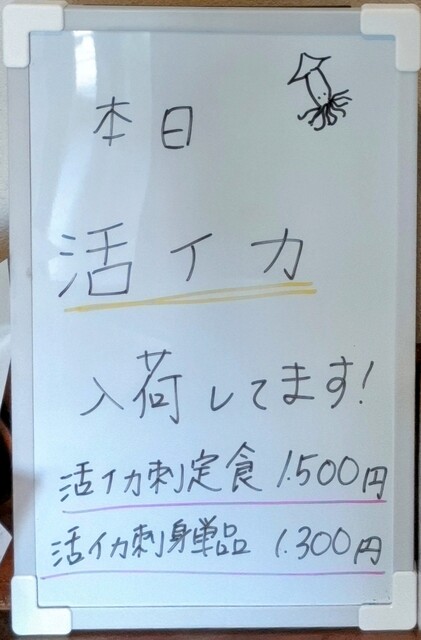 本日
活イカ
入荷してます!
活イカ刺定食 1.500円
活イカ刺身単品 1.300円